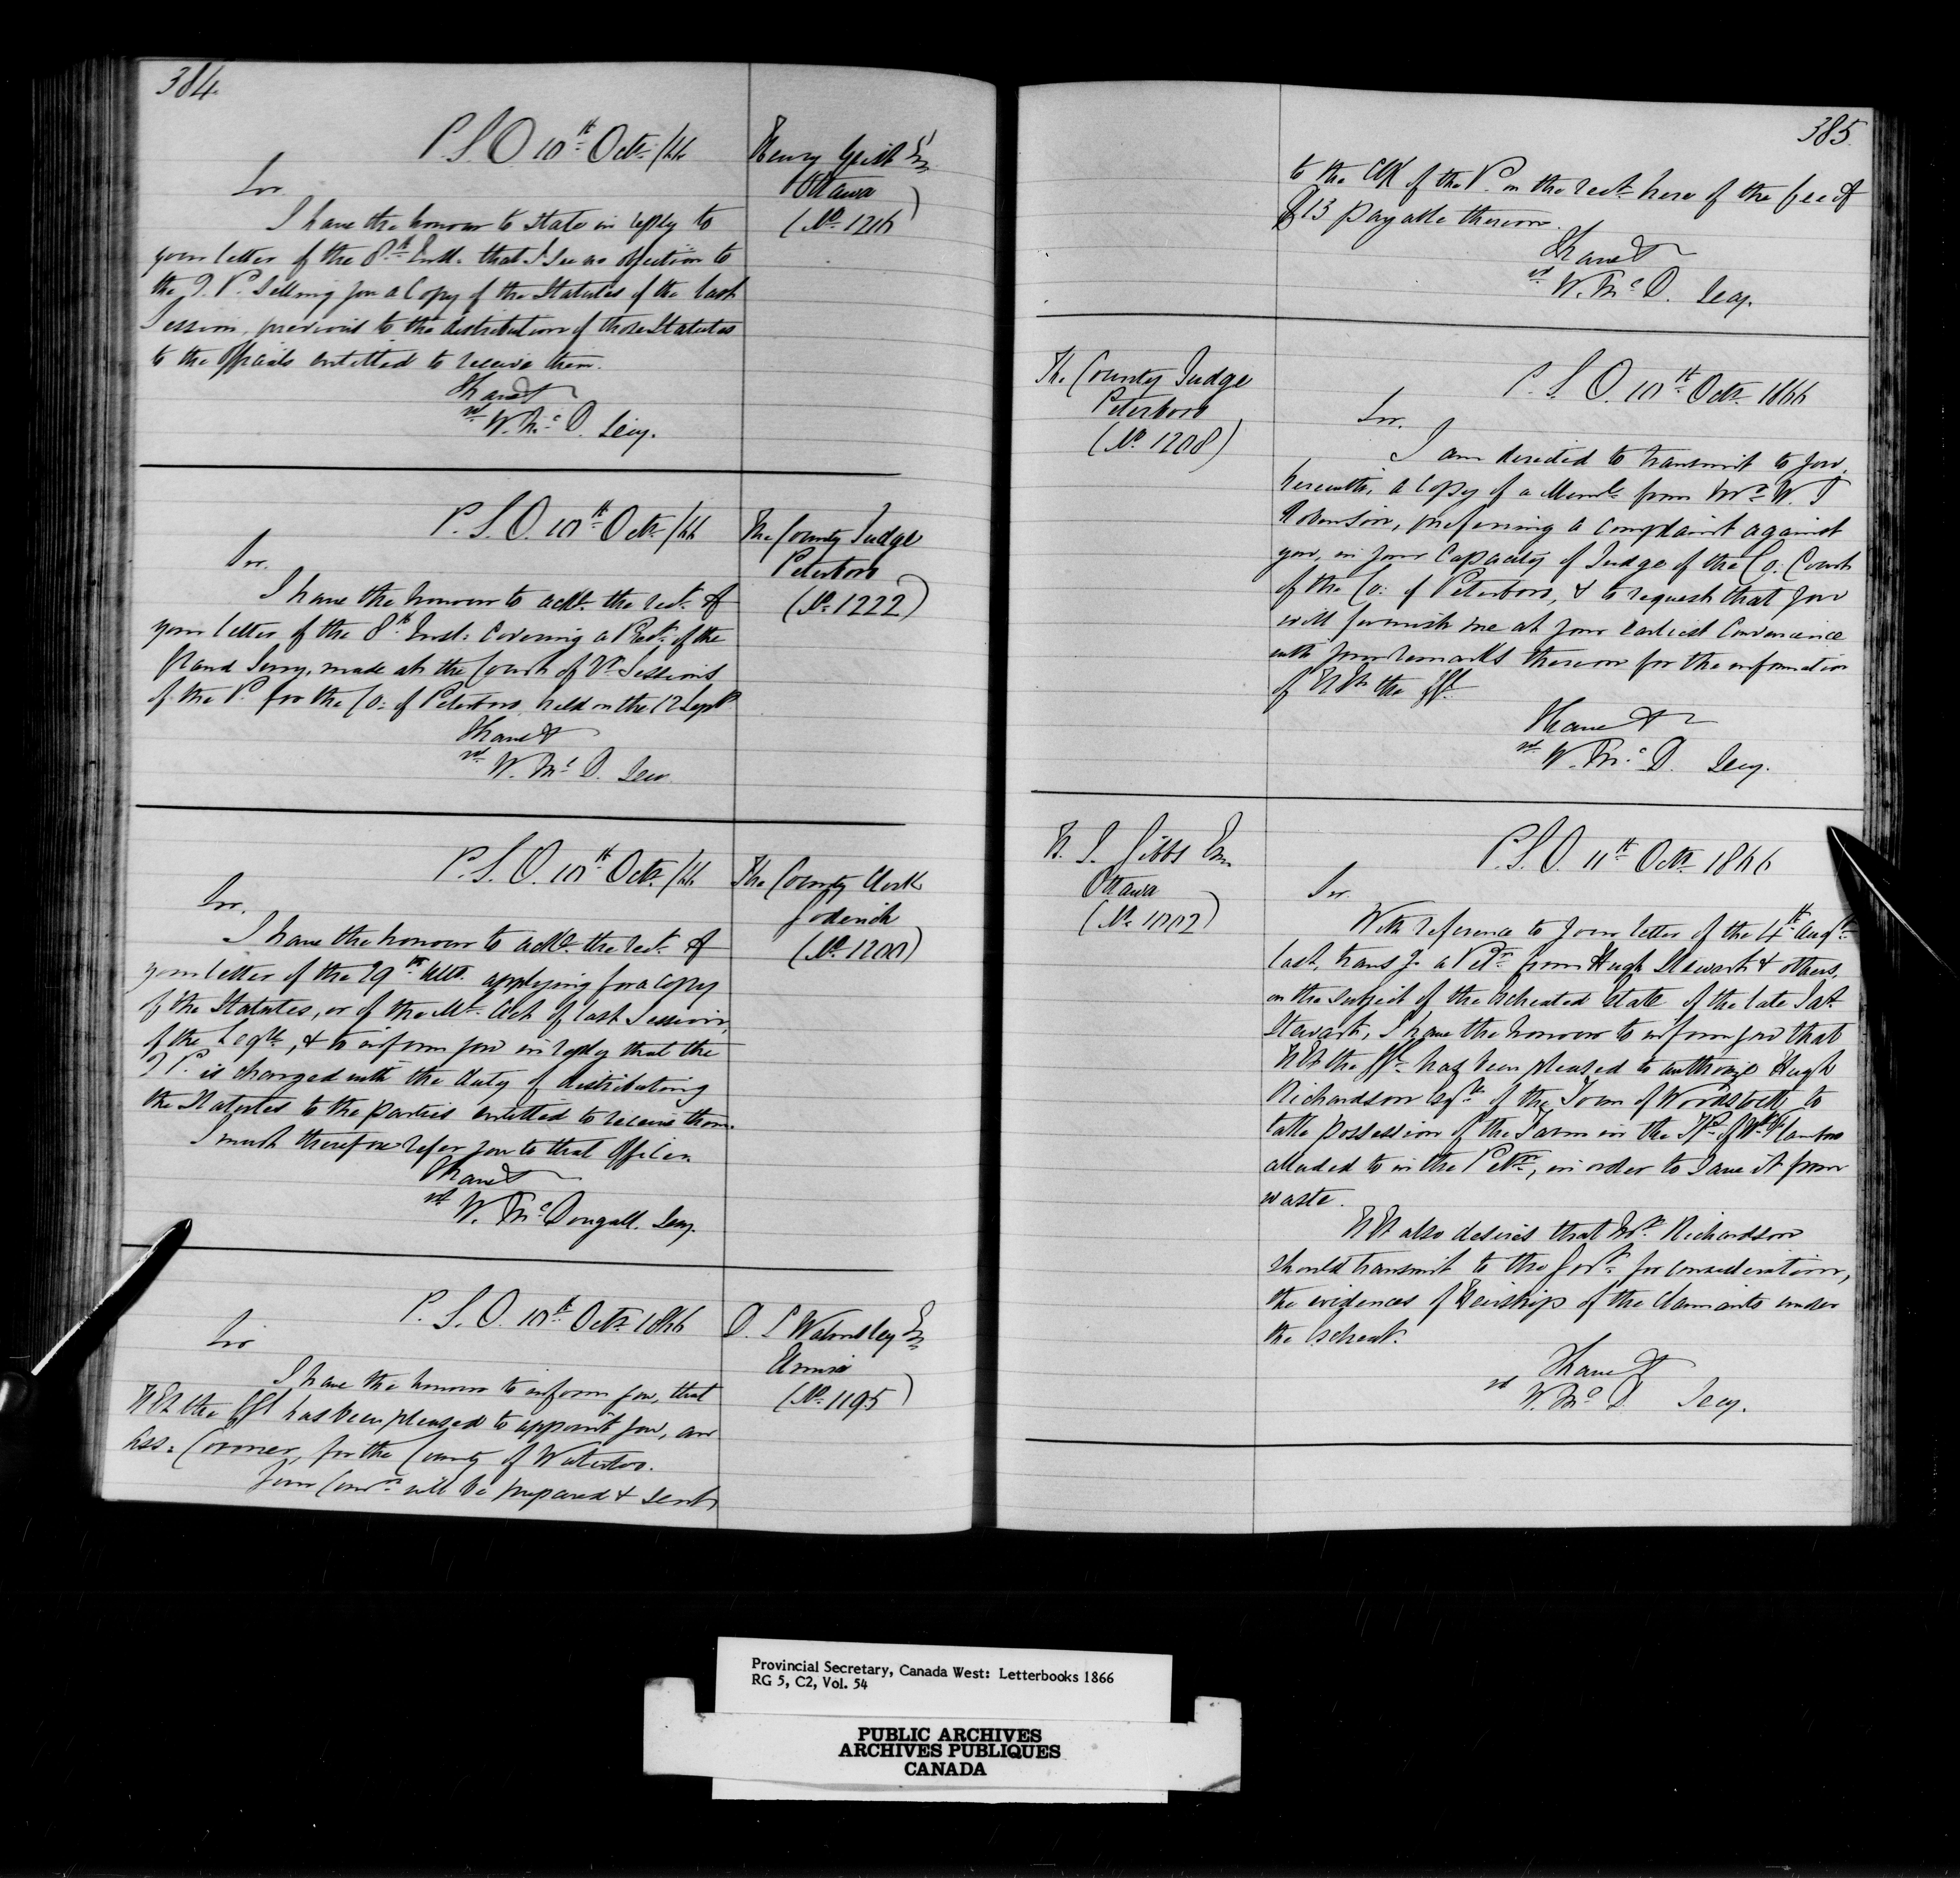 384
P.S.O. 10th Octr /66
Henry Grist Esq
Ottawa
(No. 1216)
Sir.
I have the honour to state in reply to
your letter of the 8th Inst. that I see no objection to
the Q. P. selling you a Copy of the Statutes of the last
Session, previous to the distribution of those Statutes
to the officials entitled to receive them.
I have &
sd W. McD. Secy.
P.S.O. 10th Octr /66
The County Judge
Peterboro
(No. 1222)
Sir.
I have the honour to ackn. the rect. of
your letter of the 8th Inst: covering a Prest. of the
Grand Jury, made at the Court of Qr Sessions
of the P. for the Co: of Peterboro, held on the 12 Sept
I have &
sd W. McD. Secy.
P.S.O. 10th Octr /66
The County Clerk
Goderich
(No. 1200)
Sir.
I have the honour to ackn. the rect. of
your letter of the 29th ulto. applying for a copy
of the Statutes, or of the Ml. Act of last Session,
of the Legre, & to inform you in reply that the
Q P. is charged with the duty of distributing
the Statutes to the parties entitled to receive them.
I must therefore refer you to that Officer.
I have &
sd W. McDougall. Secy.
P.S.O. 10th Octr 1866
D. S Walmsley Esq
Elmira
(No. 1195)
Sir
I have the honour to inform you, that
H E the has been pleased to appoint you, an
Ass: Coroner, for the County of Waterloo.
Your Comn will be prepared & sent
385.
to the Clk of the P. on the rect. here of the fee of
$13 payable thereon.
I have &
sd W. McD. Secy.
The County Judge
Peterboro
(No. 1208)
P.S.O. 10th Octr 1866
Sir.
I am directed to transmit to you,
herewith, a copy of a Meml. from Mr. W. J
Robinson, preferring a complaint against
you, in your Capacity of Judge of the Co: Court
of the Co: of Peterboro, & to request that you
will furnish me at your earliest convenience
with your remarks thereon for the information
of H E the
I have &
sd W. McD. Secy.
N. S. Gibbs Esq
Ottawa
(No. 1002)
P.S.O. 11th Octr 1866
Sir.
With reference to your letter of the 4th Augt.
last, transg. a Petn from Hugh Stewart & others,
on the subject of the escheated estate of the late Jas.
Stewart, I have the honour to inform you that
H E the has been pleased to authorize Hugh
Richardson Esqre of the Town of Woodstock, to
take possession of the Farm in the Tp. of
alluded to in the Petn, in order to save it from
waste.
H E also desires that Mr. Richardson
should transmit to the Govt. for consideration,
the evidences of Heirship of the claimants under
the escheat.
I have &
sd W. McD Secy.
Provincial Secretary, Canada West: Letterbooks 1866
RG 5, C2, Vol. 54
PUBLIC ARCHIVES
ARCHIVES PUBLIQUES
CANADA